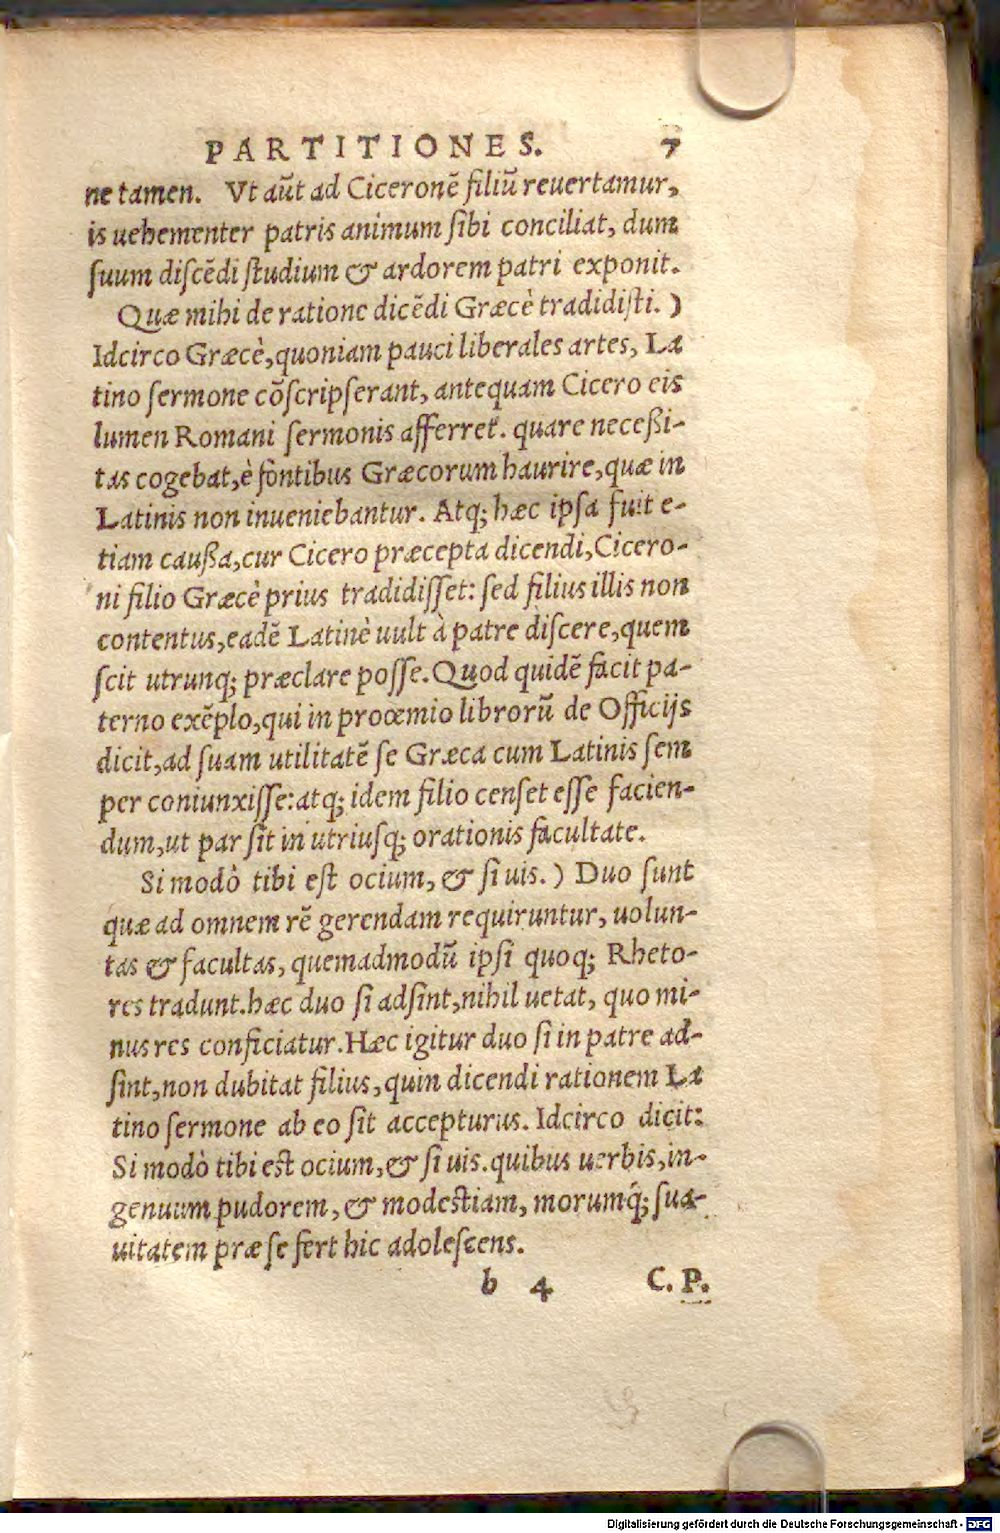 PARTITIONES. 7
ne tamen. Vt aũt ad Ciceronẽ filiũ reuertamur,
is uehementer patris animum sibi conciliat, dum
suum discẽdi studium & ardorem patri exponit.
Quæ mihi de ratione dicẽdi Græcè tradidisti.)
Idcirco Græcè, quoniam pauci liberales artes, La
tino sermone cõscripserant, antequam Cicero eis
lumen Romani sermonis afferret. quare neceßi-
tas cogebat, è fontibus Græcorum haurire, quæ in
Latinis non inueniebantur. Atq; hæc ipsa fuit e-
tiam caußa, cur Cicero præcepta dicendi, Cicero-
ni filio Græcè prius tradidisset: sed filius illis non
contentus, eadẽ Latinè uult à patre discere, quem
scit utrunq; præclare posse. Quod quidẽ facit pa-
terno exẽplo, qui in prooemio librorũ de Officijs
dicit, ad suam utilitatẽ se Græca cum Latinis sem
per coniunxisse: atq; idem filio censet esse facien-
dum, ut par sit in utriusq; orationis facultate.
Si modò tibi est ocium, & si uis.) Duo sunt
quæ ad omnem rẽ gerendam requiruntur, uolun-
tas & facultas, quemadmodũ ipsi quoq; Rheto-
res tradunt. hæc duo si adsint, nihil uetat, quo mi-
nus res conficiatur. Hæc igitur duo si in patre ad-
sint, non dubitat filius, quin dicendi rationem La
tino sermone ab eo sit accepturus. Idcirco dicit:
Si modò tibi est ocium, & si uis. quibus uerbis, in-
genuum pudorem, & modestiam, morumq́; sua-
uitatem præ se fert hic adolescens.
b 4 C. P.
Digitalisierung gefördert durch die Deutsche Forschungsgemeinschaft - DFG